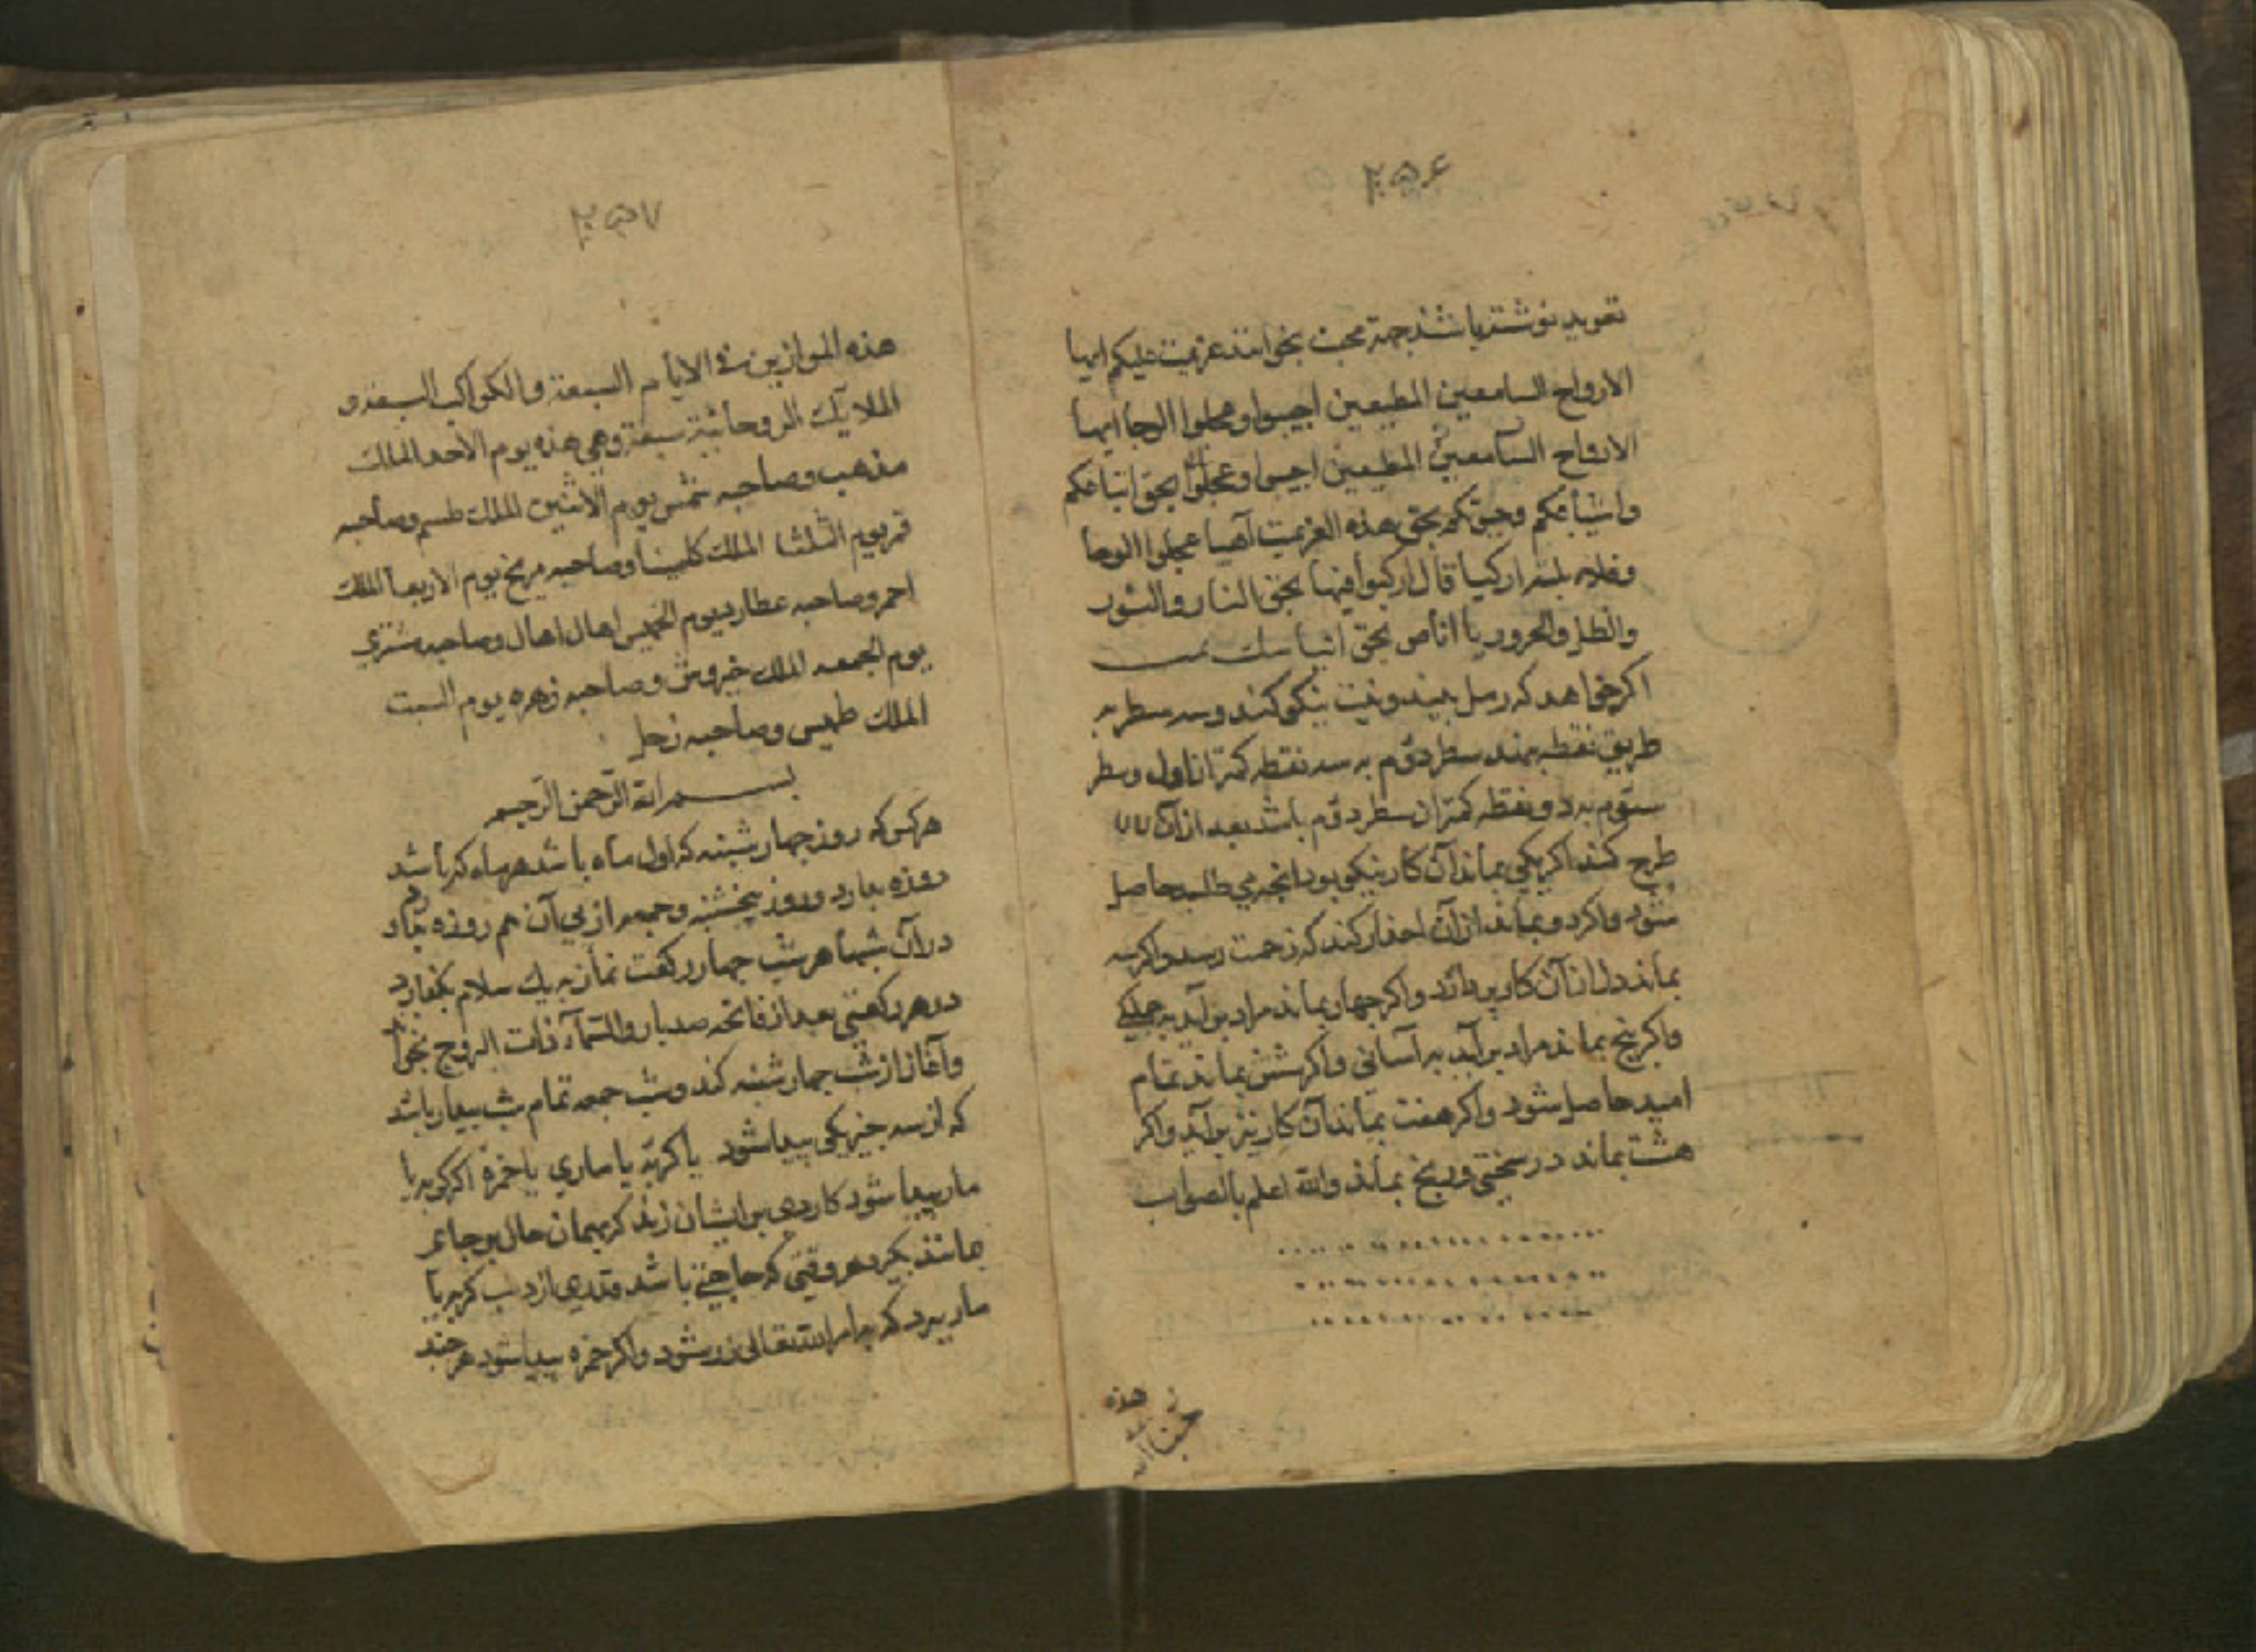 ۲۵۶
تعوید نوشته باشد جهة محبت بخوانند عزیمت علیکم ایها
الارواح السامعین المطیعین اجیبوا وعجلوا الوحا ایها
الارواح السامعین المطیعین اجیبوا وعجلوا بحق اتباعکم
واشیاعکم وبحق هذه العزیمت آهیا عجلوا الوحا
قال ارکبوا فیها بحق النار والنور
والظل والحرور یا اناس بحق
اکر خواهد که رمل بیند ونیت نیکو کند وسه سطر به
طریق نقطه بهند سطر دوم به سه نقطه کمتر از اول وسطر
سوم به دو نقطه کمتر از سطر دوم باشد بعد از آن
طرح کند اکر یکی بماند آن کار نیکو بود انچه می طلبد حاصل
شود واکر دو بماند از آن احذار کند که زحمت رسد واکر سه
بماند دل از آن کار بردارد واکر چهار بماند مراد بر آید به
واکر پنج بماند مراد بر آید به آسانی واکر شش بماند تمام
امید حاصل شود واکر هفت بماند آن کار نیز بر آید واکر
هشت بماند در سختی ورنج بماند والله اعلم بالصواب
هذه
۲۵۷
هذه الموازین فی الایام السبعة والکواکب السبعة و
الملایک الروحانیة سبعة وهی هذه یوم الاحد الملک
مذهب وصاحبه شمس یوم الاثنین الملک طسم وصاحبه
قمر یوم الثلثا الملک کلینا وصاحبه مریخ یوم الاربعا الملک
احمر وصاحبه عطارد یوم الخمیس اهال اهال وصاحبه مشتری
یوم الجمعه الملک خیروش وصاحبه زهره یوم السبت
الملک طهیس وصاحبه زحل
بسم الله الرحمن الرحیم
هر کس که روز چهارشنبه که اول ماه باشد هر ماه که باشد
روزه بدارد وروز پنجشنبه وجمعه از پی آن هم روزه
در آن شبها هر شب چهار رکعت نماز به یک سلام بکذارد
در هر رکعتی بعد از فاتحه صد بار والسمآء ذات البروج بخواند
وآغاز از شب چهارشنبه کند وشب جمعه تمام شب بیدار باشد
که از سه چیز یکی پیدا شود یا کربه یا ماری یا خمره اکر کربه یا
مار پیدا شود کاردی بر ایشان زند که بهمان حال بر جای
بماند بکیرد هر وقتی که حاجتی باشد قدری از دنب کربه یا
مار ببرد که بامر الله تعالی زر شود واکر خمره پیدا شود هر چند